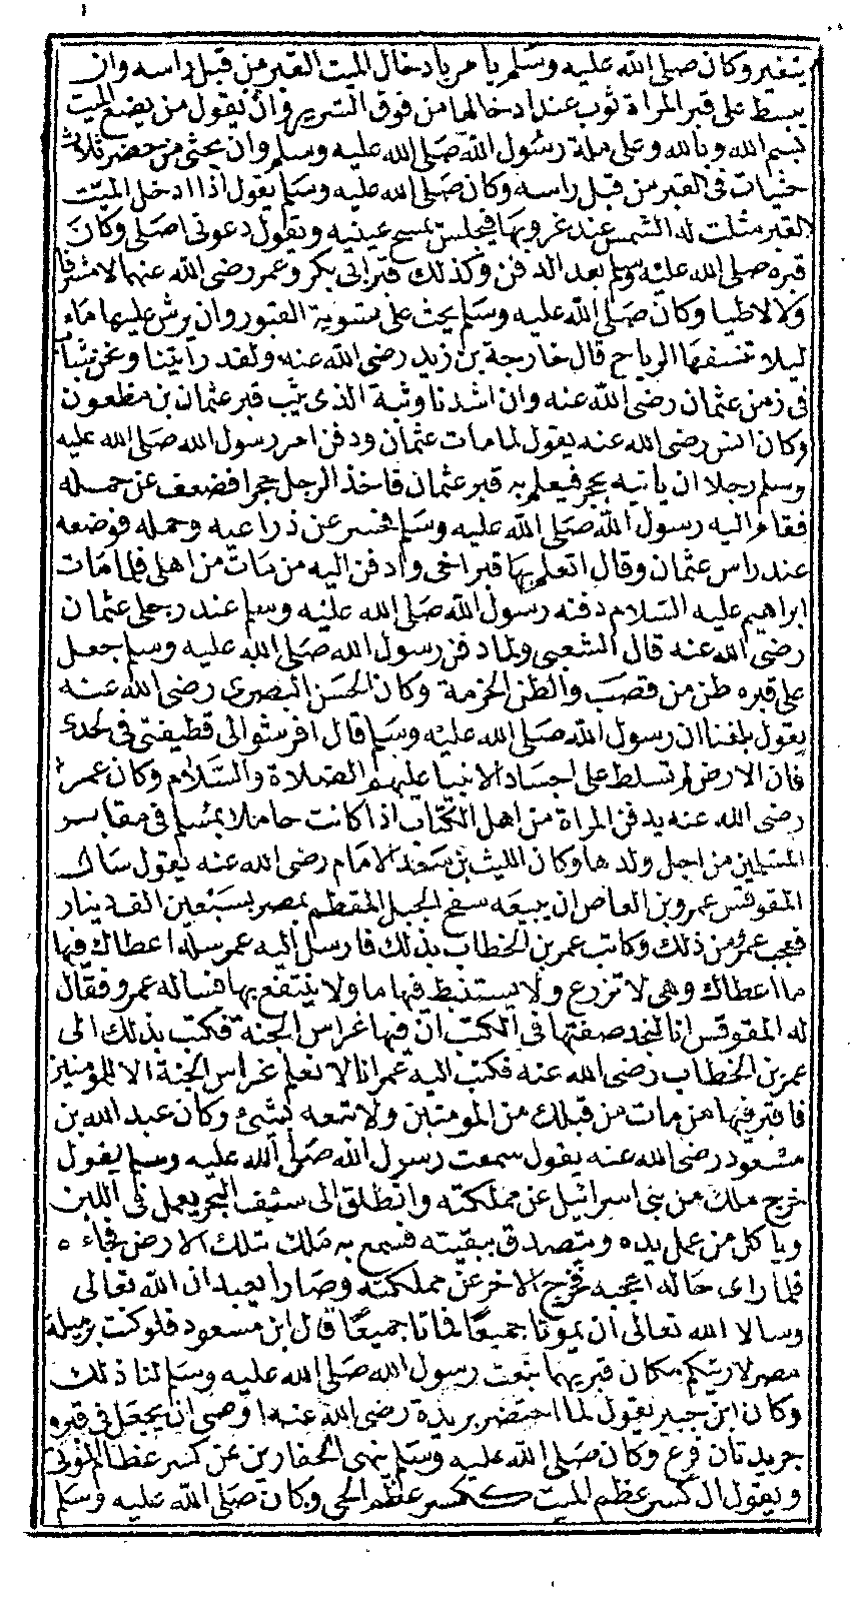 يتغير وكان صلى الله عليه وسلم يأمر بادخال الميت القبر من قبل راسه وان
يبسط على قبر المراة ثوب عند ادخالها من فوق السرير وان يقول من يضع الميت
بسم الله وبالله وعلى ملة رسول الله صلى الله عليه وسلم وان يحثى من حضر ثلاث
حثيات فى القبر من قبل راسه وكان صلى الله عليه وسلم يقول اذا ادخل الميت
القبر مثلت له الشمس عند غروبها فيجلس يمسح عينيه ويقول دعونى اصلى وكان
قبره صلى الله عليه وسلم بعد الدفن وكذلك قبر ابى بكر وعمر رضى الله عنهما لا مشرفا
ولا لاطيا وكان صلى الله عليه وسلم يحث على تسوية القبور وان يرش عليها ماء
ليلا تنسفها الرياح قال خارجة بن زيد رضى الله عنه ولقد رايتنا ونحن شباب
فى زمن عثمان رضى الله عنه وان اشدنا وثبة الذى يثب قبر عثمان بن مظعون
وكان انس رضى الله عنه يقول لما مات عثمان ودفن امر رسول الله صلى الله عليه
وسلم رجلا ان ياتيه بحجر فيعلم به قبر عثمان فاخذ الرجل حجرا فضعف عن حمله
فقام اليه رسول الله صلى الله عليه وسلم فحسر عن ذراعيه وحمله فوضعه
عند راس عثمان وقال اتعلم بها قبر اخى وادفن اليه من مات من اهلى فلما مات
ابراهيم عليه السلام دفنه رسول الله صلى الله عليه وسلم عند رجلى عثمان
رضى الله عنه قال الشعبى ولما دفن رسول الله صلى الله عليه وسلم جعل
على قبره طن من قصب والطن الحزمة وكان الحسن البصرى رضى الله عنه
يقول بلغنا ان رسول الله صلى الله عليه وسلم قال افرشوا لى قطيفتى فى لحدى
فان الارض لم تسلط على اجساد الانبيا عليهم الصلاة والسلام وكان عمر
رضى الله عنه يدفن المراة من اهل الكتاب اذا كانت حاملا بمسلم فى مقابر
المسلمين من اجل ولدها وكان الليث بن سعد الامام رضى الله عنه يقول سال
المقوقس عمرو بن العاص ان يبيعه سفح الجبل المقطم بمصر بسبعين الف دينار
فعجب عمرو من ذلك وكاتب عمر بن الخطاب بذلك فارسل اليه عمر سله اعطاك فيها
ما اعطاك وهى لا تزرع ولا يستنبط فيها ما ولا ينتفع بها فساله عمرو فقال
له المقوقس انا لنجد صفتها فى الكتب ان فيها غراس الجنة فكتب بذلك الى
عمر بن الخطاب رضى الله عنه فكتب اليه عمر انا لا نعلم غراس الجنة الا للمومنين
فاقبر فيها من مات من قبلك من المومنين ولا تبعه بشئ وكان عبد الله بن
مسعود رضى الله عنه يقول سمعت رسول الله صلى الله عليه وسلم يقول
خرج ملك من بنى اسرائيل عن مملكته وانطلق الى سيف البحر يعمل فى اللبن
وياكل من عمل يده ويتصدق ببقيته فسمع به ملك تلك الارض فجاءه
فلما راى حاله اعجبه فخرج الاخر عن مملكته وصارا يعبدان الله تعالى
وسالا الله تعالى ان يموتا جميعا فماتا جميعا قال ابن مسعود فلو كنت برميلة
مصر لاريتكم مكان قبريهما بنعت رسول الله صلى الله عليه وسلم لنا ذلك
وكان ابن جبير يقول لما احتضر بريدة رضى الله عنه اوصى ان يجعل فى قبره
جريدتان فرع وكان صلى الله عليه وسلم ينهى الحفارين عن كسر عظام الموتى
ويقول ان كسر عظم الميت ككسر عظم الحى وكان صلى الله عليه وسلم